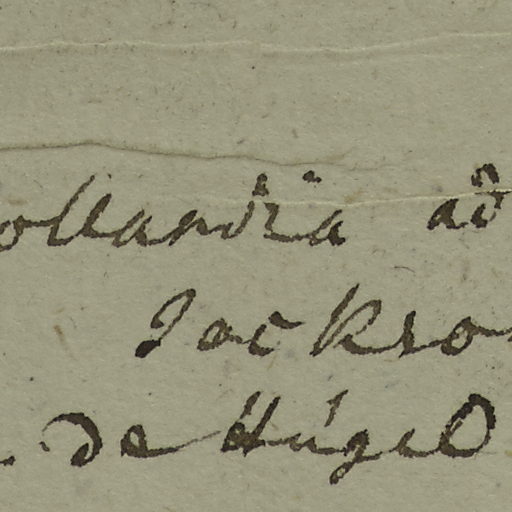 ollandia ad
Jackro
de Hügel